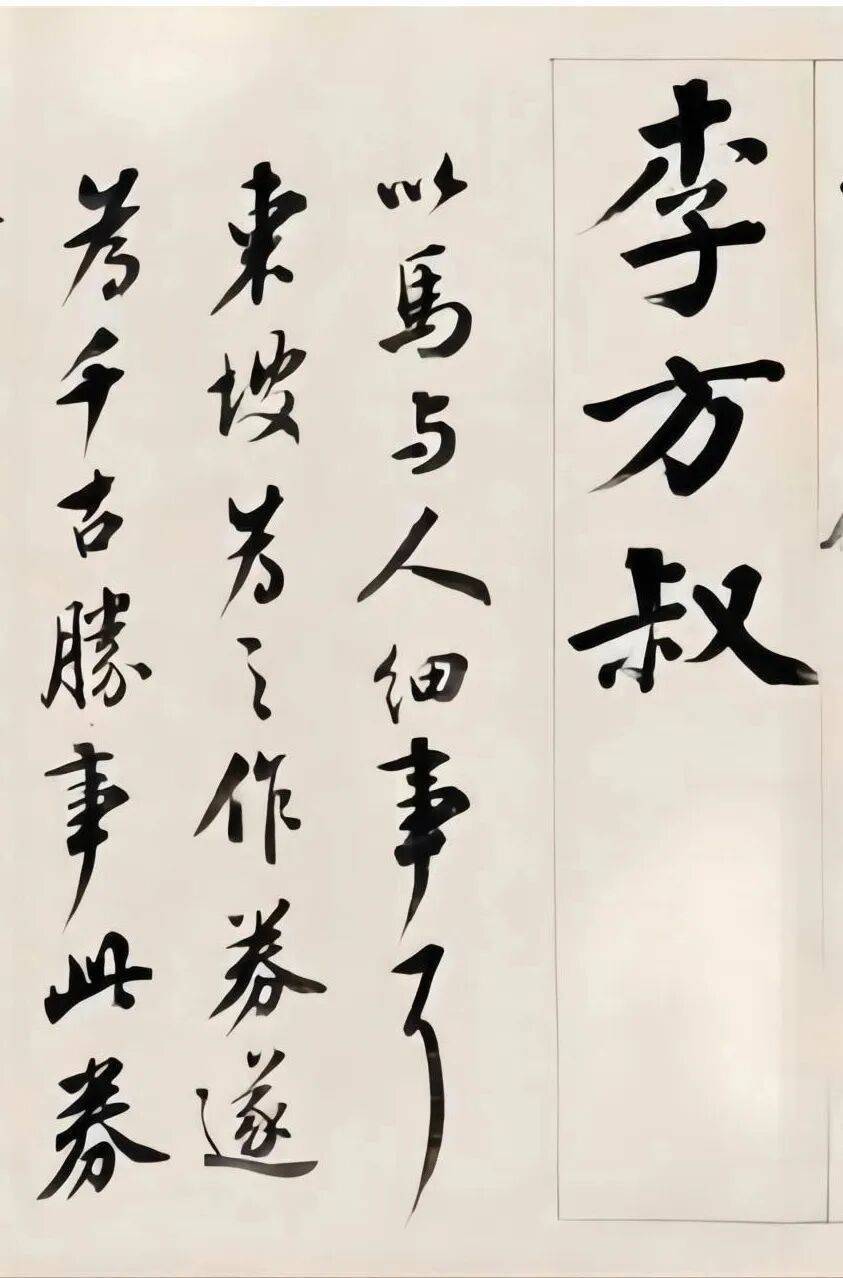 李方叔
以馬与人細事耳
東坡為之作券遂
為千古勝事此券